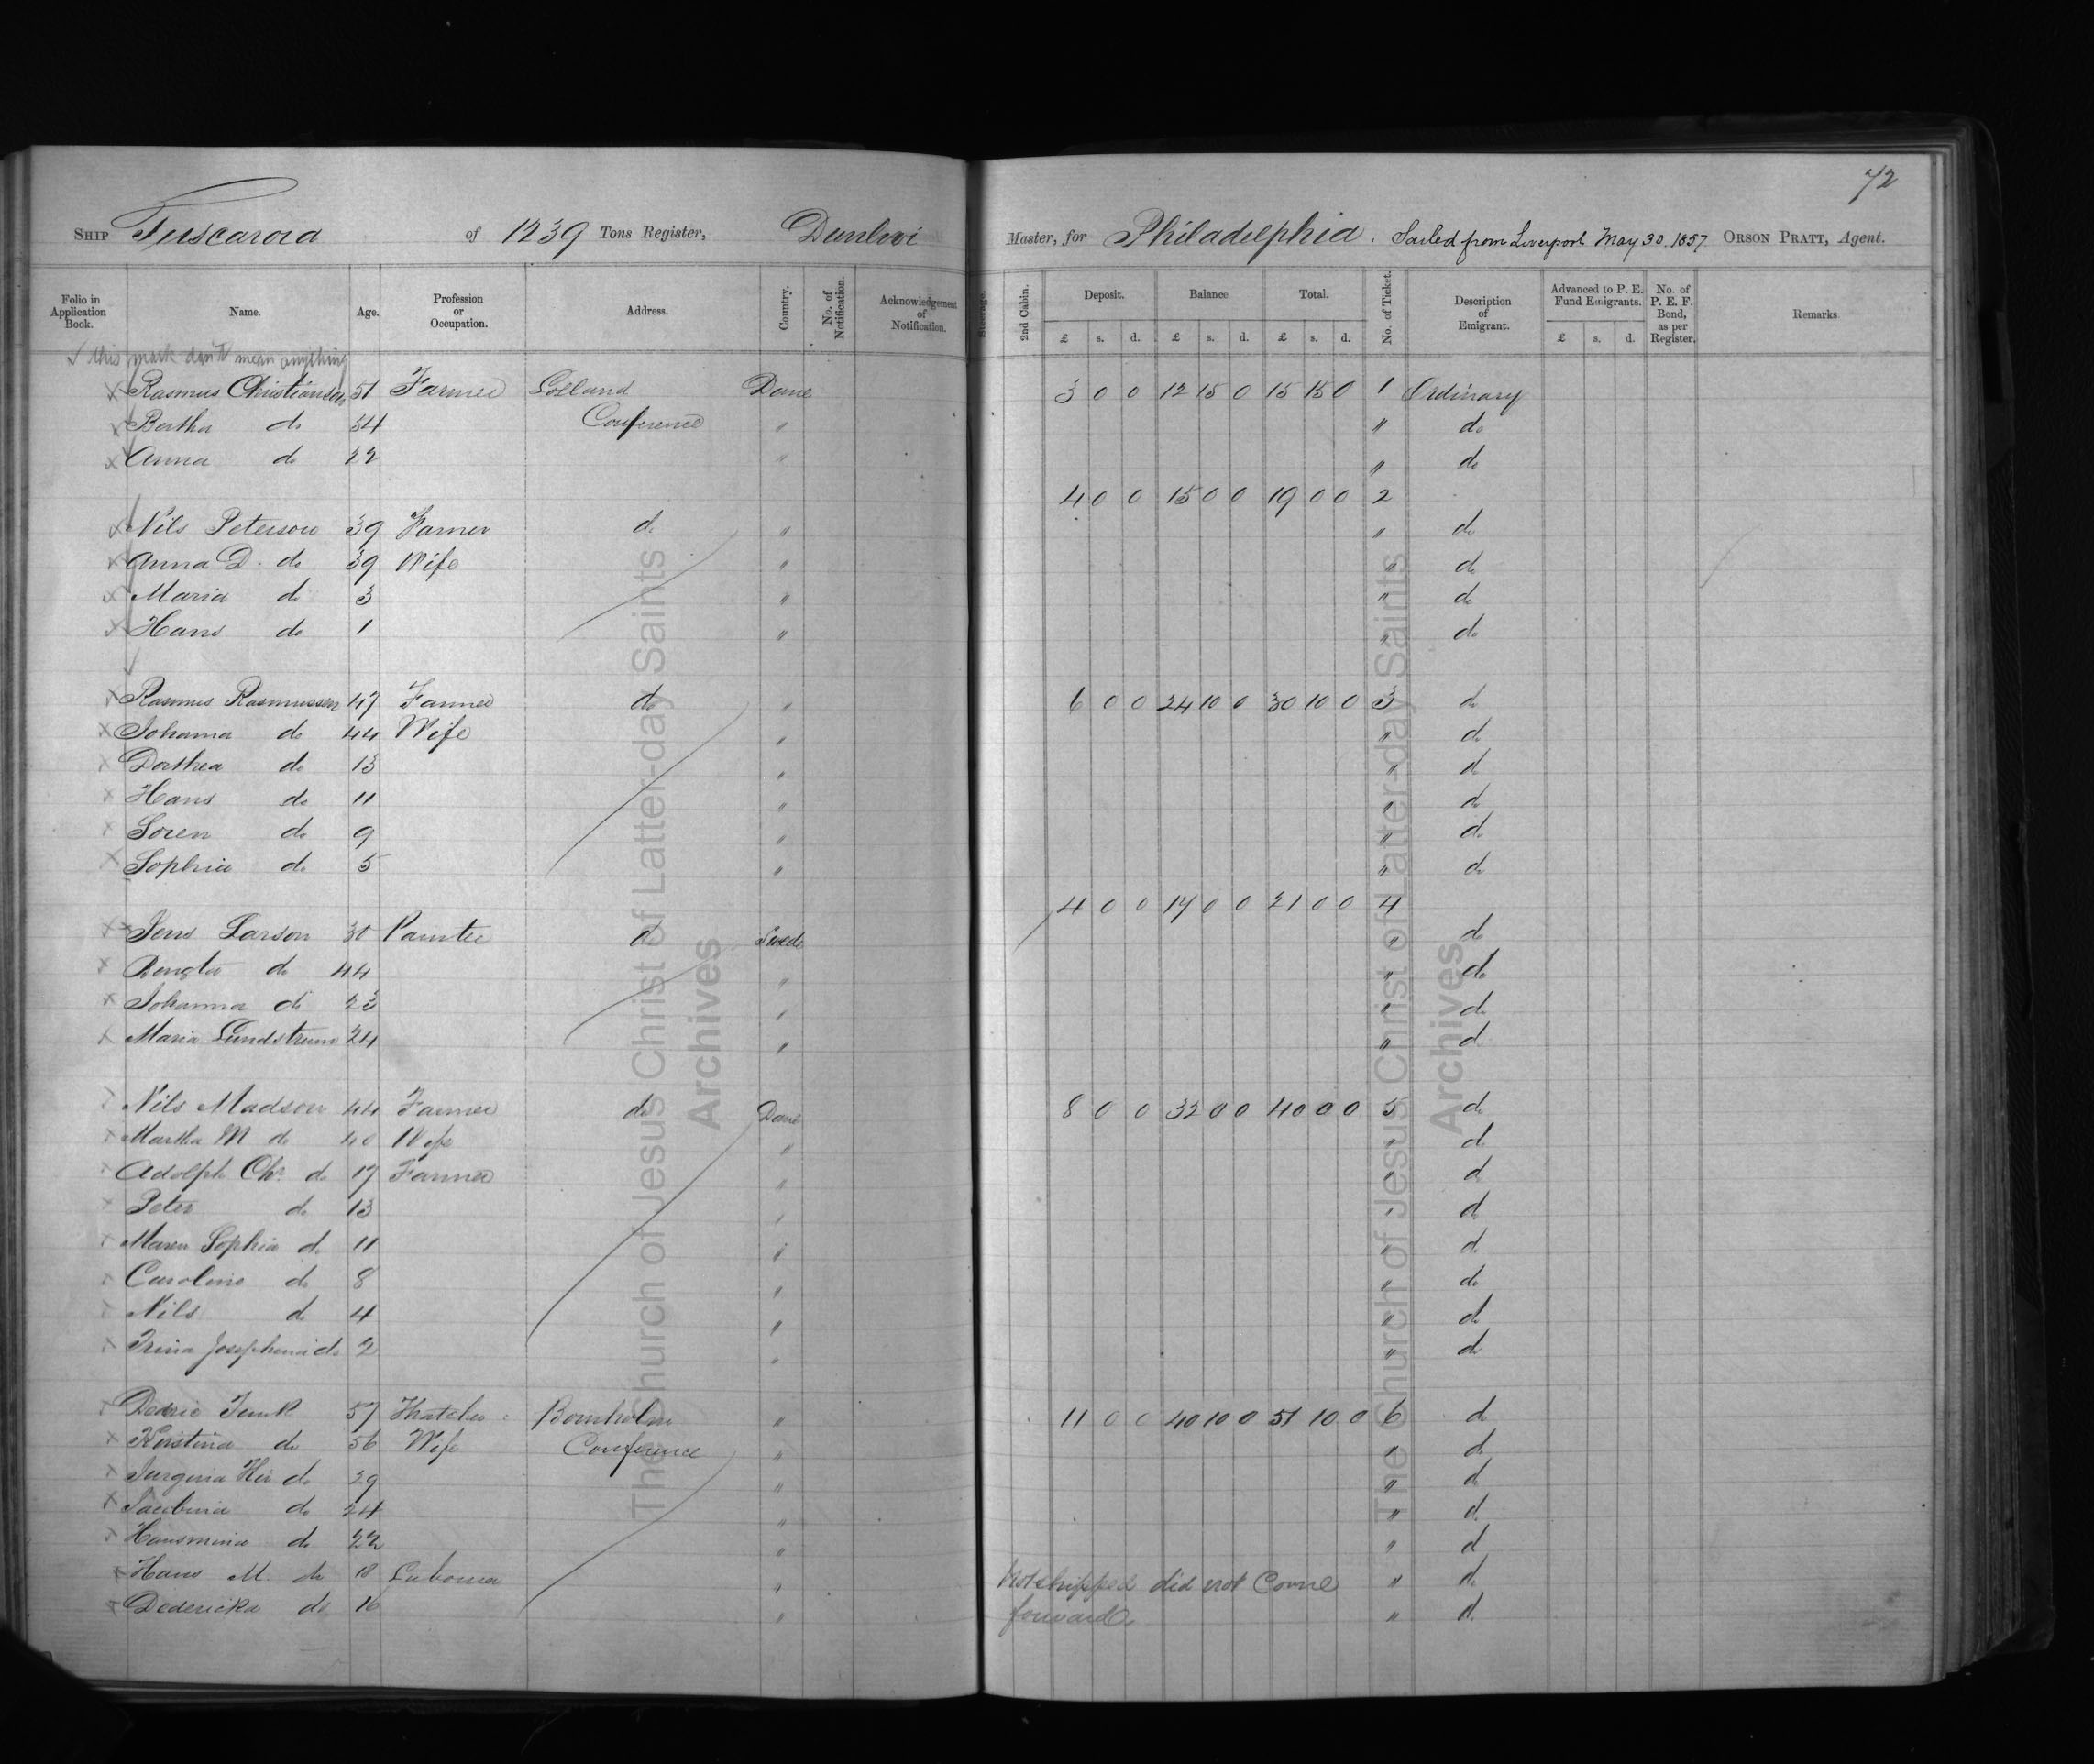 72
Ship Tuscarora of 1239 Tons Register, Master, for Philadelphia. Sailed from Liverpool May 30. 1857 Orson Pratt, Agent.
Folio in Application Book. Name. Age. Profession or Occupation. Address. Country. No. of Notification. Acknowledgement of Notification. Steerage. 2nd Cabin. Deposit. Balance Total. No. of Ticket. Description of Emigrant. Advanced to P. E. Fund Emigrants. No. of P. E. F. Bond, as per Register. Remarks
£ s. d. £ s. d. £ s. d. £ s. d.
✓ this mark don't mean anything
Rasmus Christiansen 51 Farmer Lolland Dane 3 0 0 12 15 0 15 15 0 1 Ordinary
Bertha do 54 Conference " " do
Anna do 22 " " do
4 0 0 15 0 0 19 0 0 2
Nils Peterson 39 Farmer do " " do
Anna D. do 39 Wife " " do
Maria do 3 " " do
Hans do 1 " " do
Rasmus Rasmussen 47 Farmer do " 6 0 0 24 10 0 30 10 0 3 do
Johanna do 44 Wife " " do
Dorthea do 13 " " do
Hans do 11 " " do
Soren do 9 " " do
Sophia do 5 " " do
4 0 0 17 0 0 21 0 0 4
Jens Larson 30 Painter do Swede " do
Bengta do 44 " " do
Johanna do 23 " " do
Maria Lundstrum 24 " " do
Nils Madson 44 Farmer do Dane 8 0 0 32 0 0 40 0 0 5 do
Martha M do 40 Wife " " do
Adolph Chr. do 17 Farmer " " do
Peter do 13 " " do
Maren Sophia do 11 " " do
Caroline do 8 " " do
Nils do 4 " " do
Trina Josephena do 2 " " do
Dedric Funk 57 Thatcher Bornholm " 11 0 0 40 10 0 51 10 0 6 do
Kirstina do 56 Wife Conference " " do
Jurgina do 29 " " do
Jacobina do 24 " " do
Hansmina do 22 " " do
Hans M. do 18 Laborer " Not shipped did not Come " do
Dedericka do 16 " forward " do
The Church of Jesus Christ of Latter-day Saints
Archives
The Church of Jesus Christ of Latter-day Saints
Archives